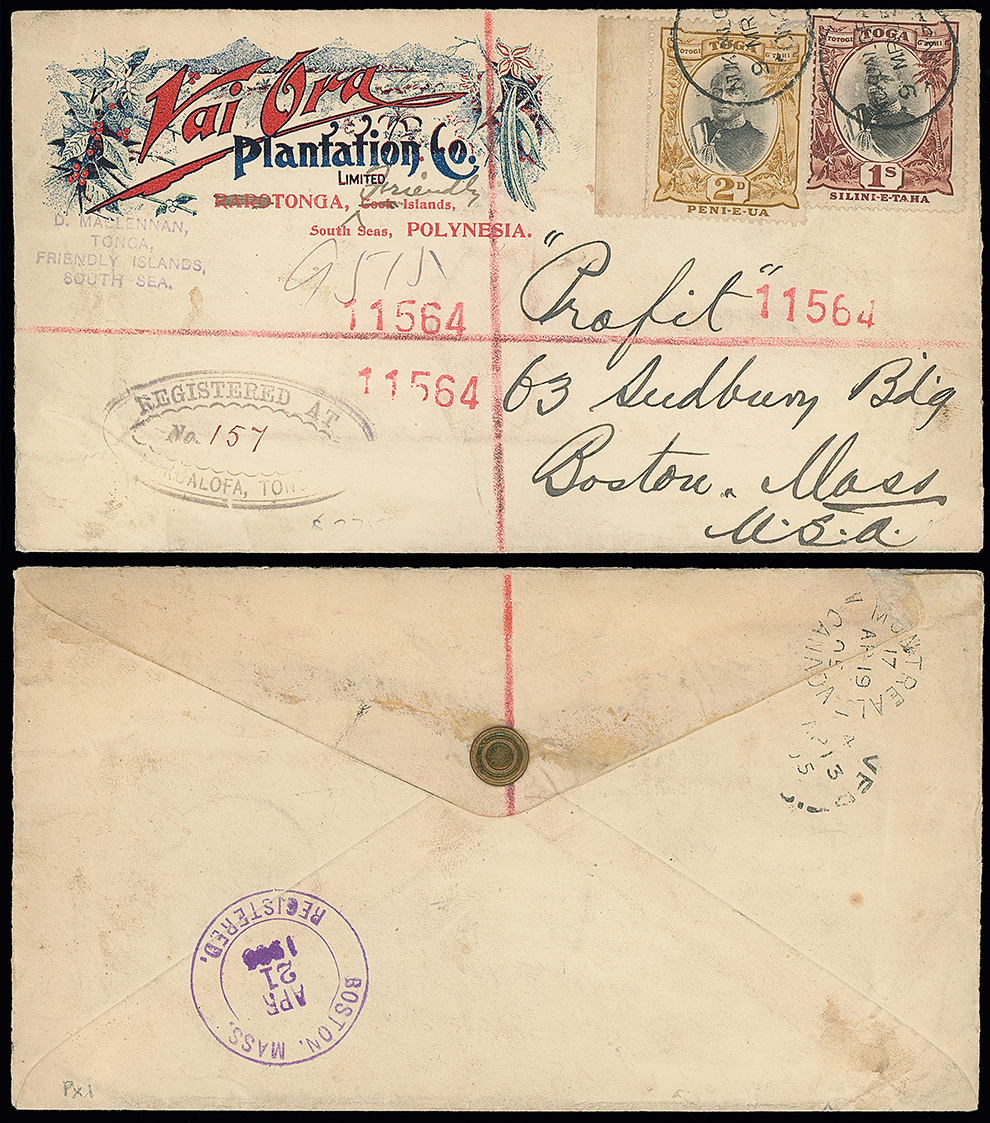 Vai Ora
Plantation Co.
LIMITED
RAROTONGA, Cook Islands,
Friendly
South Seas, POLYNESIA.
D. MACLENNAN,
TONGA,
FRIENDLY ISLANDS,
SOUTH SEA.
TOTOGI TOGA
2D
PENI-E-UA
TOTOGI TOGA
1S
SILINI-E-TAHA
11564
"Profit"
11564
11564
63 Sudbury Bdg
Boston. Mass
U.S.A.
REGISTERED AT
No. 157
KUALOFA, TON
MONTREAL
17
AP 19
05
CANADA
13
05
BOSTON, MASS.
REGISTERED.
APR
21
Px1